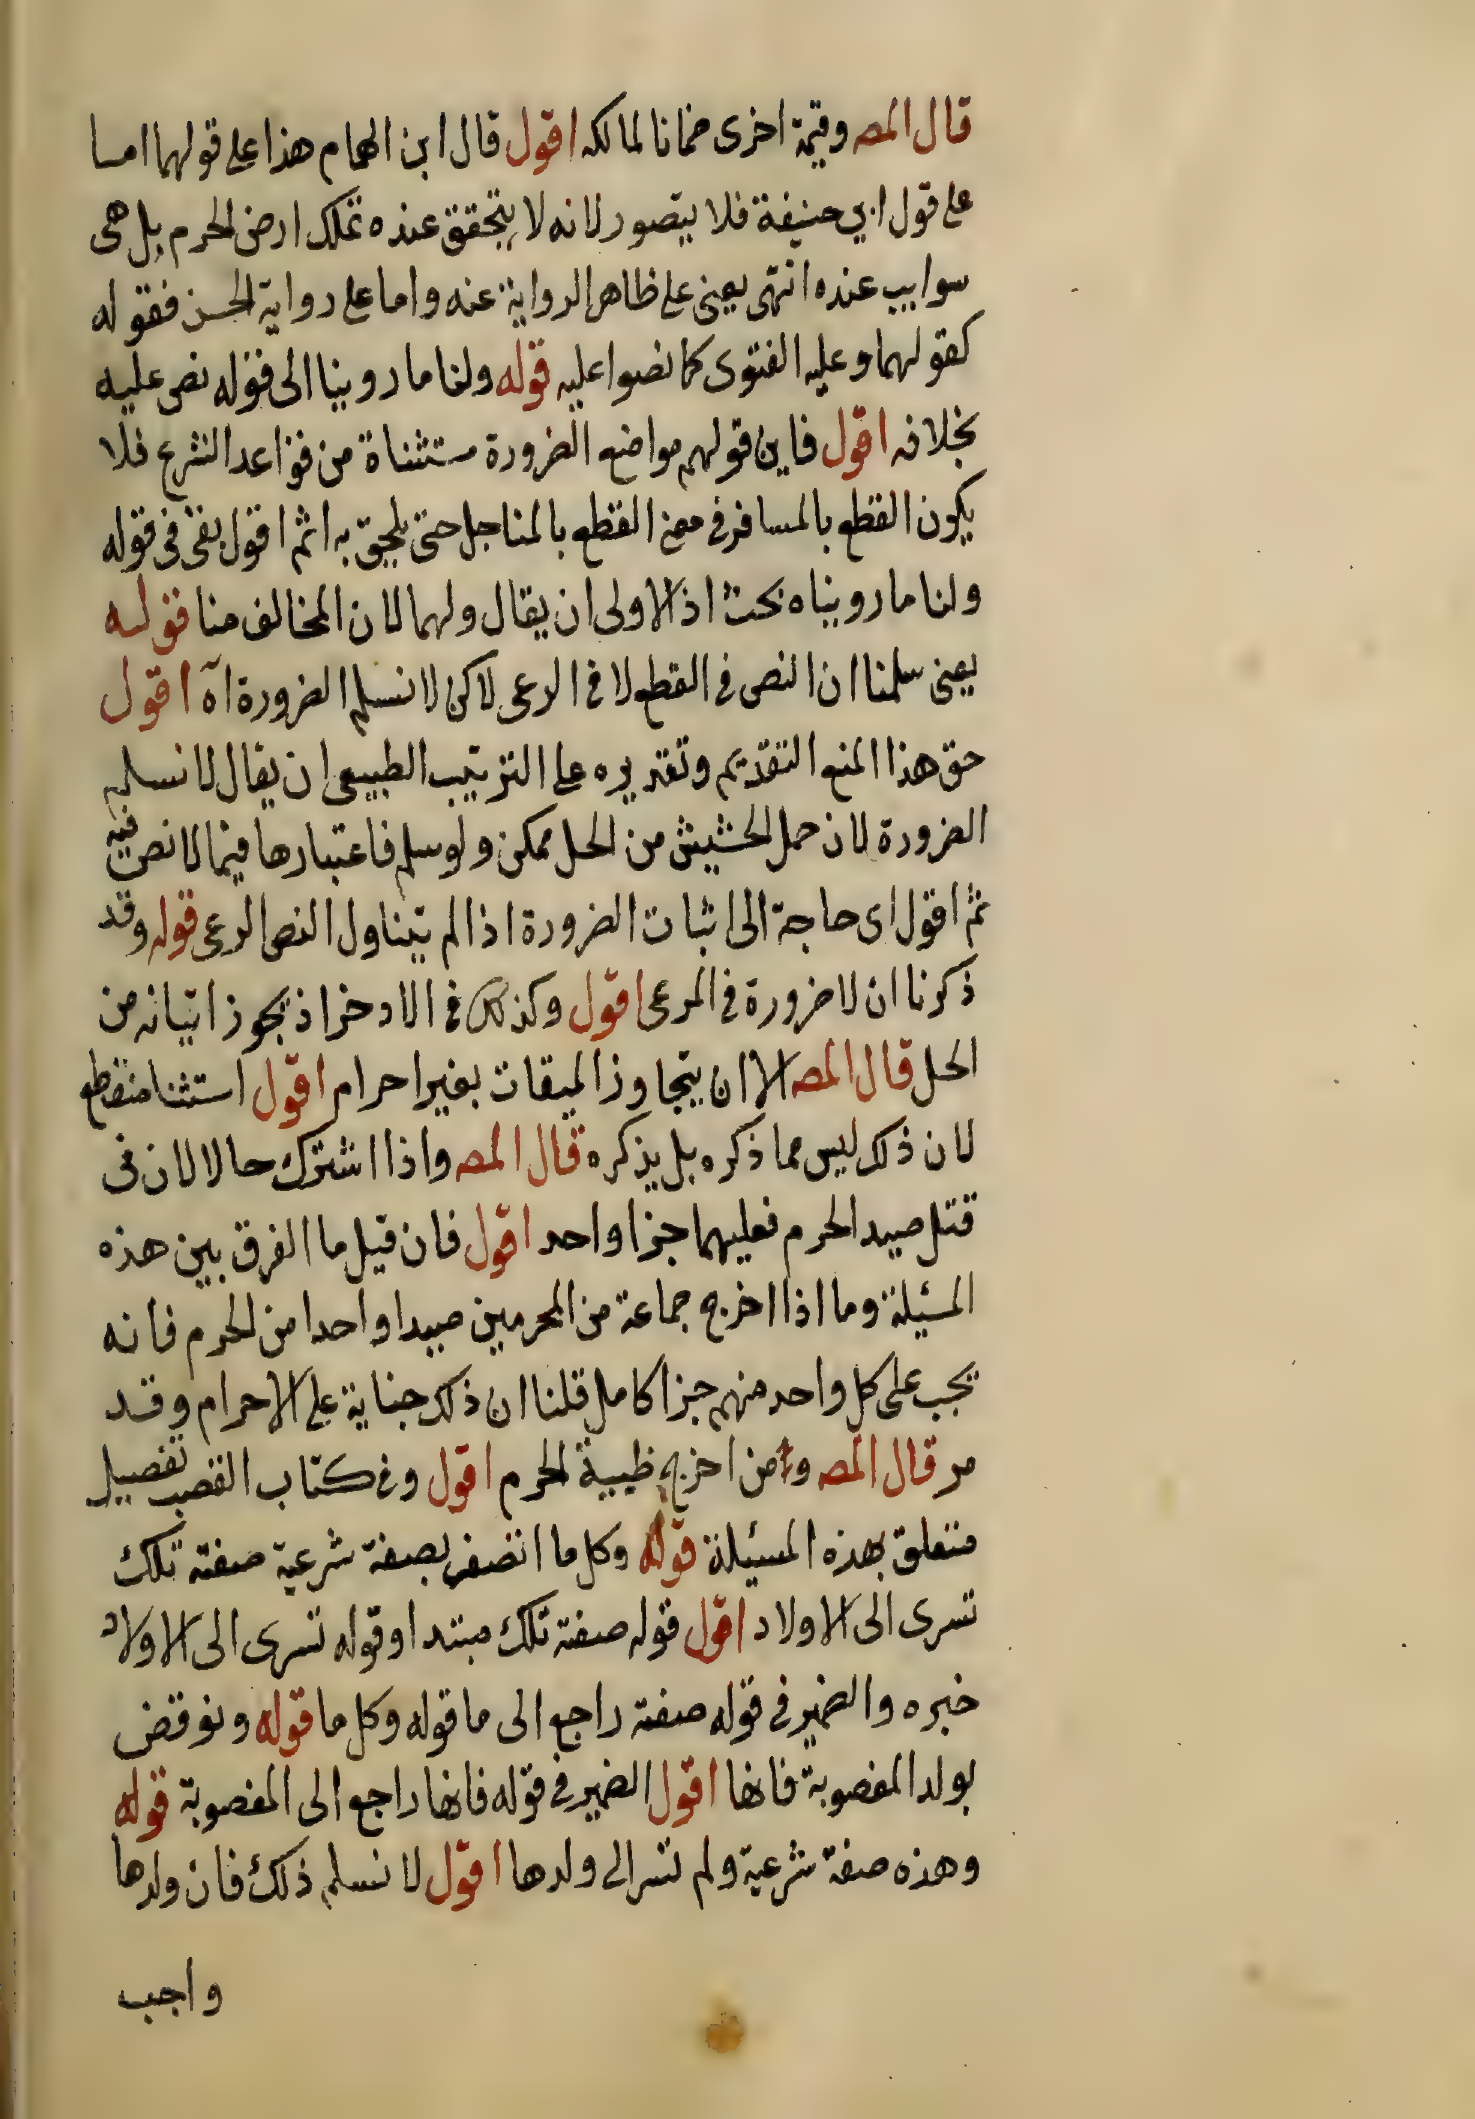 قال المصه وقيمة اخرى ضمانا لمالكه اقول قال ابن الهمام هذا على قولهما اما
على قول ابي حنيفة فلا يتصور لانه لا يتحقق عنده تملك ارض الحرم بل هى
سوايب عنده انتهى يعنى على ظاهر الرواية عنه واما على رواية الحسن فقوله
كقولهما وعليه الفتوى كما نصوا عليه قوله ولنا ما روينا الى قوله نص عليه
بخلافه اقول فاين قولهم مواضع الضرورة مستثناة من قواعد الشرع فلا
يكون القطع بالمسافر فى معنى القطع بالمناجل حتى يلحق به ثم اقول بقى فى قوله
ولنا ما رويناه بحث اذ الاولى ان يقال ولهما لان المخالف منا قوله
يعنى سلمنا ان النص فى القطع لا فى الرعى لاكن لا نسلم الضرورة آه اقول
حق هذا المنع التقديم وتقديره على الترتيب الطبيعى ان يقال لا نسلم
الضرورة لان حمل الحشيش من الحل ممكن ولو سلم فاعتبارها فيما لا نص فيه
ثم اقول اى حاجة الى اثبات الضرورة اذا لم يتناول النص الرعى قوله وقد
ذكرنا ان لا ضرورة فى المرعى اقول وكذلك فى الادخر اذ يجوز اتيانه من
الحل قال المصه الا ان يتجاوز الميقات بغير احرام اقول استثنا منقطع
لان ذلك ليس مما ذكره بل يذكره قال المصه واذا اشترك حالالان فى
قتل صيد الحرم فعليهما جزا واحد اقول فان قيل ما الفرق بين هذه
المسئيلة وما اذا اخرج جماعة من المحرمين صيدا واحدا من الحرم فانه
يجب على كل واحد منهم جزا كامل قلنا ان ذلك جناية على الاحرام وقد
مر قال المصه ومن اخرج ظبية الحرم اقول وفى كتاب الغصب تفصيل
متعلق بهذه المسئيلة قوله وكل ما اتصف بصفة شرعية صفته تلك
تسرى الى الاولاد اقول قوله صفته تلك مبتدا وقوله تسرى الى الاولاد
خبره والضمير فى قوله صفته راجع الى ما قوله وكل ما قوله ونوقض
بولد المغصوبة فانها اقول الضمير فى قوله فانها راجع الى المغصوبة قوله
وهذه صفة شرعية ولم تسر الى ولدها اقول لا نسلم ذلك فان ولدها
واجب